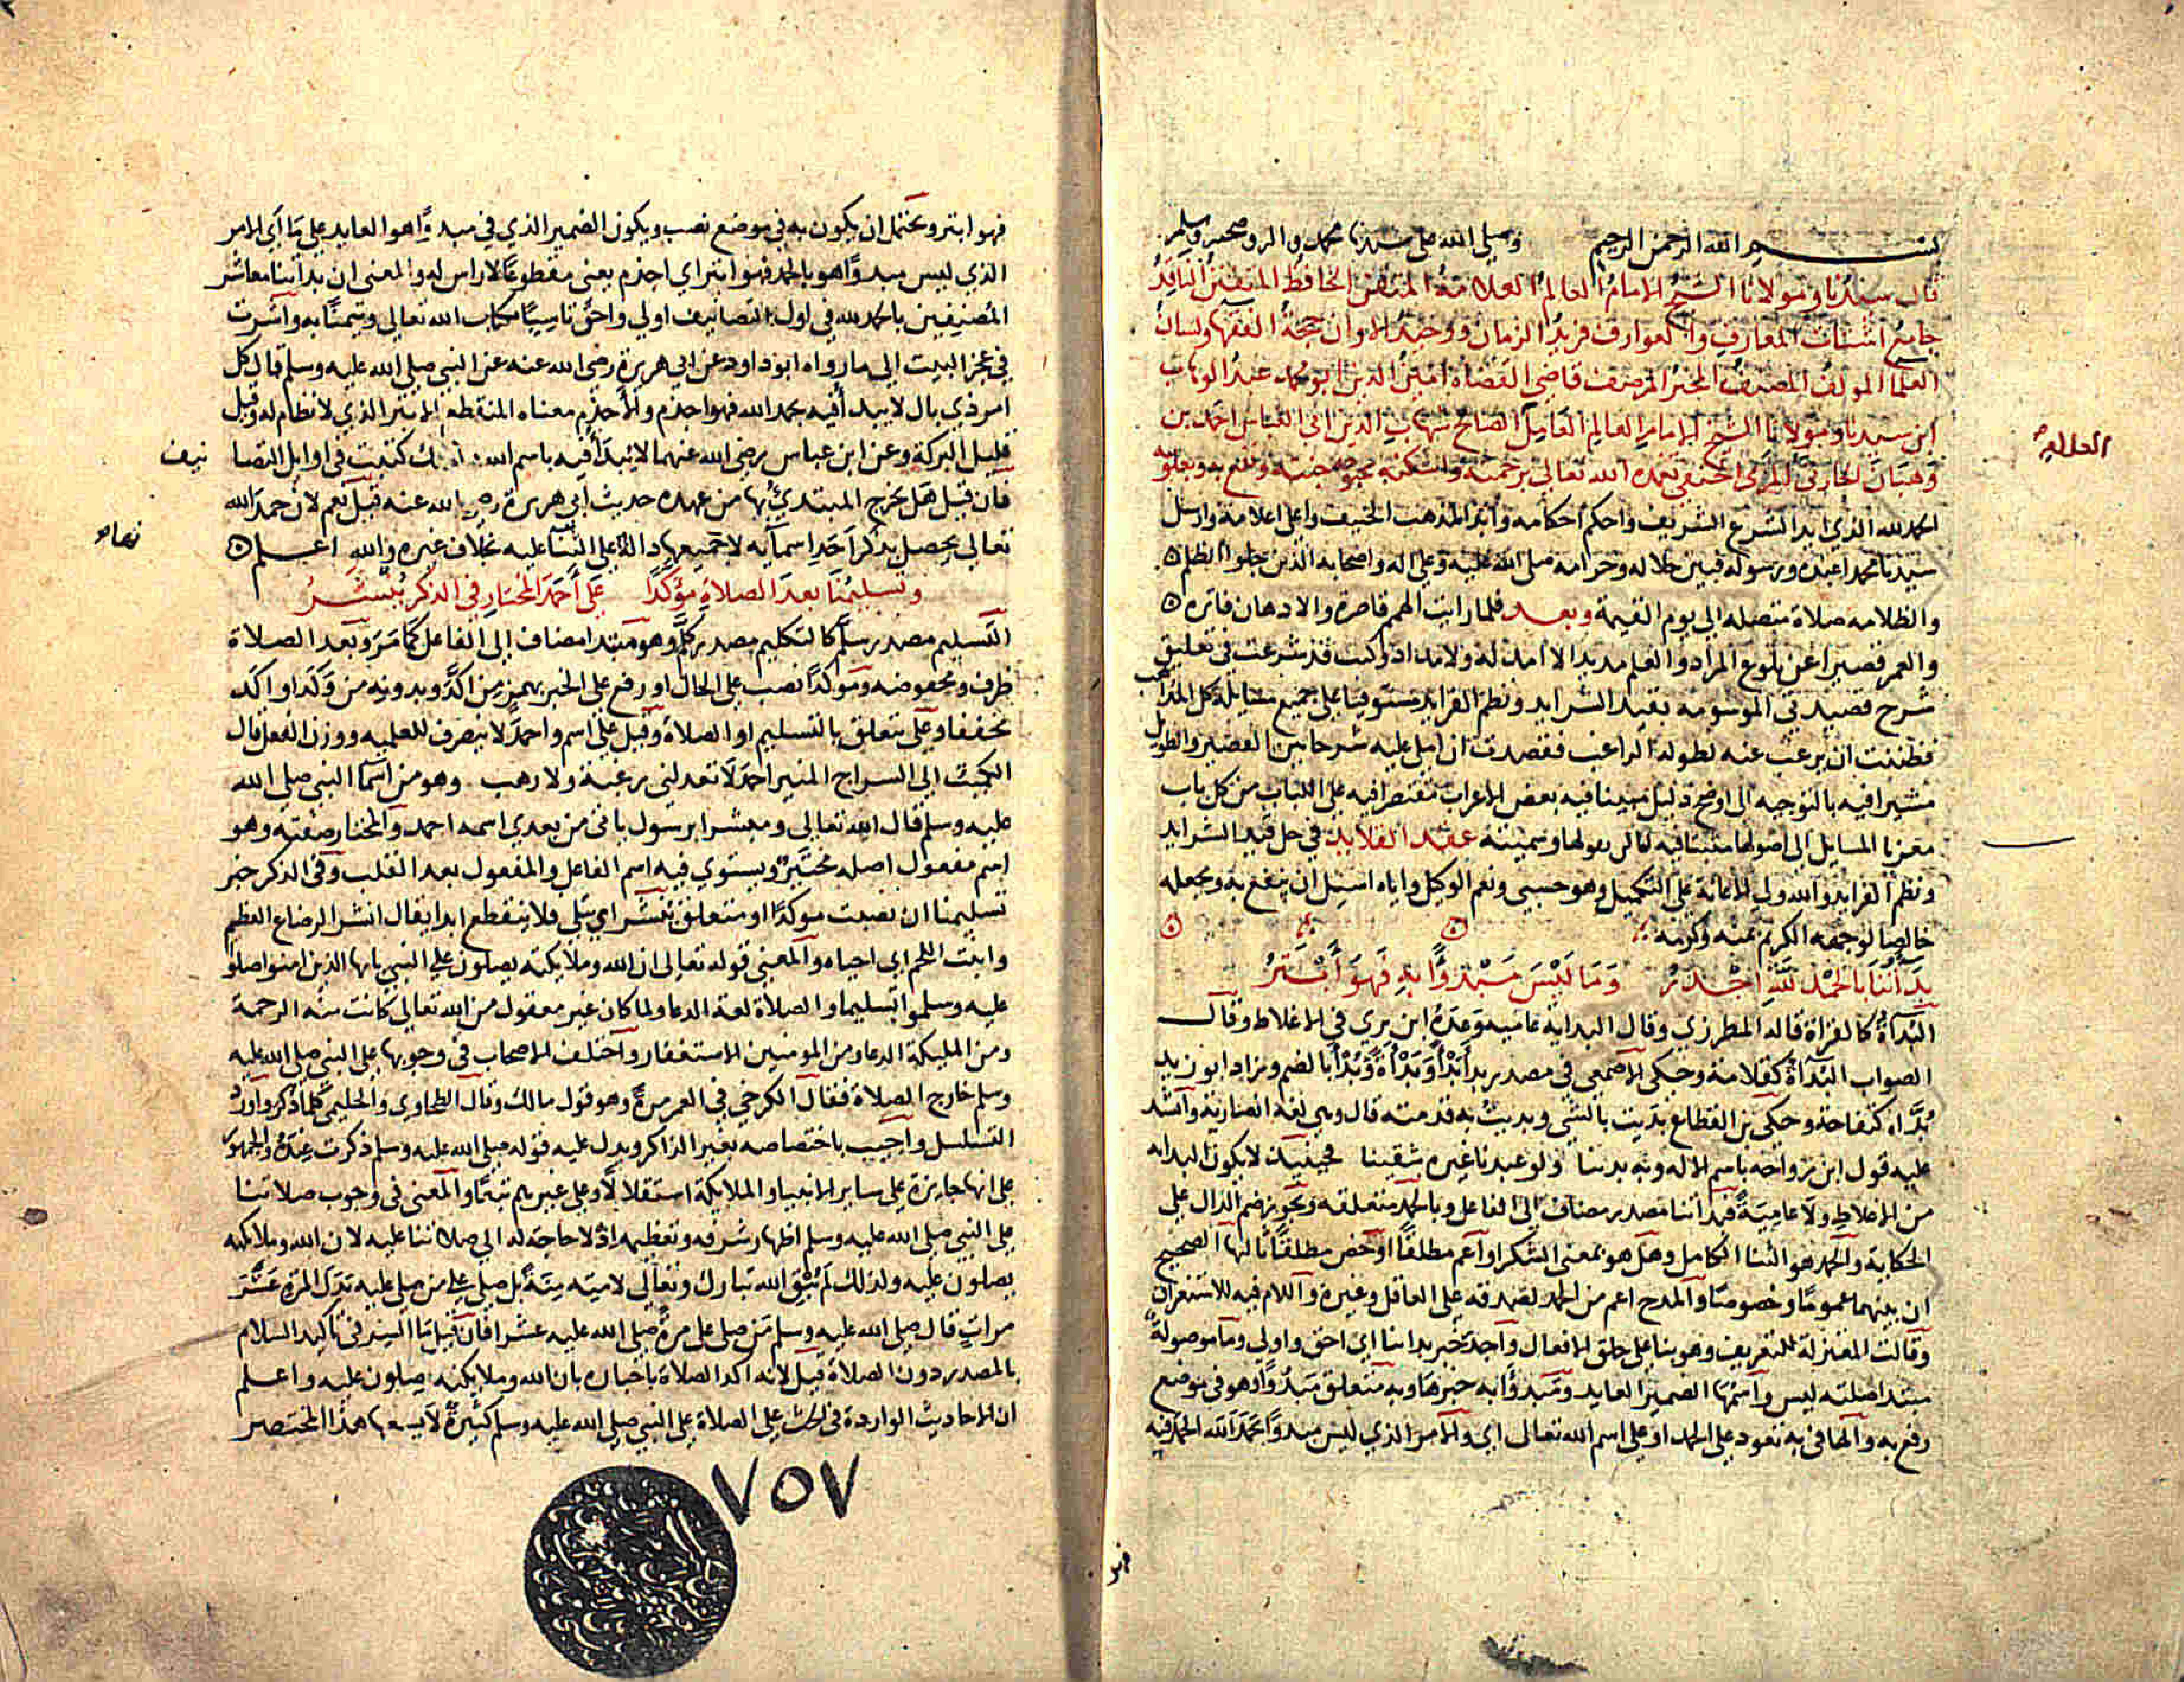 بسم الله الرحمن الرحيم وصلى الله على سيدنا محمد واله وصحبه وسلم
قال سيدنا ومولانا الشيخ الامام العالم العلامة المتقن الحافظ المتفنن الناقد
جامع اشتات المعارف والعوارف فريد الزمان ووحيد الاوان حجة الفقها ولسان
العلما المولف المصنف قاضي القضاه امين الدين ابو محمد عبد الوهاب
ابن سيدنا ومولانا الشيخ الامام العالم العامل الصالح شهاب الدين ابى العباس احمد بن
وهبان الحارثي المزي الحنفي تغمده الله تعالى برحمته واسكنه بحبوحة جنته ونفع به وبعلومه
الحمد لله الذي ايد الشرع الشريف واحكم احكامه وايد المذهب الحنيف واعلى اعلامه وارسل
سيدنا محمدا عبده ورسوله فبين حلاله وحرامه صلى الله عليه وعلى اله واصحابه الذين جلوا الظلم
والظلامه صلاة متصله الى يوم القيمة وبعد فلما رايت الهمم قاصرة والاذهان فاتره
والعمر قصيرا عن بلوغ المراد والعلم مديدا لا امد له ولا مداد وكنت قد شرعت في تعليق
شرح قصيدتي الموسومة بقيد الشرايد ونظم الفرايد مستوفيا على جميع مسايله كل المذاهب
فظننت ان يرغب عنه لطوله الراغب فقصدت ان املي عليه شرحا بين القصير والطويل
مشيرا فيه بالتوجيه الى اوضح دليل مبينا فيه بعض الاعراب مقتصرا فيه على اللباب من كل باب
معزيا المسايل الى اصولها وسميته عقد القلايد في حل قيد الشرايد
ونظم الفرايد والله ولي الاعانة على التكميل وهو حسبي ونعم الوكيل واياه اسيل ان ينفع به ويجعله
خالصا لوجهه الكريم بمنه وكرمه
بدأتنا بالحمد لله اجدر وما ليس مبدوًّا به فهو أبتر
البدأة كالقراة قاله المطرزي وقال البداية عامية وعده ابن بري في الاغلاط وقال
الصواب البدآة كقلامة وحكى الاصمعي في مصدر بدأ بدأً وبدأة وبدأ بالضم وزاد ابو زيد
بدآه كتفاحة وحكى بن القطاع بديت بالشي وبديت به قدمته قال وهي لغة انصارية وانشد
عليه قول ابن رواحه باسم الاله وبه بدينا ولو عبدنا غيره شقينا فحينيذ لا يكون البدايه
من الاغلاط ولا عامية فبدأتنا مصدر مضاف الى الفاعل وبالحمد متعلقه ويجوز ضم الدال على
الحكاية والحمد هو الثنا الكامل وهل هو بمعنى الشكر او اعم مطلقا او اخص مطلقًا ثالثها الصحيح
ان بينهما عموما وخصوصا والمدح اعم من الحمد لصدقه على العاقل وغيره واللام فيه للاستغراق
وقالت المعتزلة للتعريف وهو بنا على خلق الافعال واجدر خبر بداتنا اي احق واولى وما موصولة
مبتدا صلته ليس واسمها الضمير العايد ومبدوًا به خبرها وبه متعلق مبدوًا وهو في موضع
رفع به والها في به تعود على الحمد او على اسم الله تعالى اي والامر الذي ليس مبدوًا بحمد الله الحمد فيه
العلامه
فهو
فهو ابتر ويحتمل ان يكون به في موضع نصب ويكون الضمير الذي في مبدوًا هو العايد على ما اي الامر
الذي ليس مبدوًا هو بالحمد فهو ابتر اي اجذم يعني مقطوعًا لا راس له والمعنى ان بداتنا معاشر
المصنفين بالحمد لله في اول التصانيف اولي واحق تاسيًا بكتاب الله تعالى وتيمنًا به واشرت
في عجز البيت الى ما رواه ابو داود عن ابي هريرة رضى الله عنه عن النبي صلى الله عليه وسلم قال كل
امر ذي بال لا يبدأ فيه بحمد الله فهو اجذم والاجذم معناه المنقطع الابتر الذي لا نظام له وقيل
قليل البركة وعن ابن عباس رضى الله عنهما لا يبدأ فيه باسم الله كتبت في اوايل التصا نيف
فان قيل هل يخرج المبتدئ بها من عهده حديث ابي هريرة رضي الله عنه قيل نعم لان حمد الله
تعالى يحصل بذكر احد اسمآيه لا جميعها دالة على الثنا عليه بخلاف غيره والله اعلم
وتسليمنا بعد الصلاة مؤكدًا على أحمد المختار في الذكر ينشر
التسليم مصدر سلم كالتكليم مصدر كلم وهو مبتدا مضاف الى الفاعل كما مر وبعد الصلاة
ظرف ومخفوضه وموكدًا نصب على الحال او رفع على الخبر بهمز من اكد وبدونه من وكد او اكد
مخففا وعلى متعلق بالتسليم او الصلاة وقيل على اسم واحمد لا ينصرف للعلميه ووزن الفعل قال
الكميت الى السراج المنير احمد لا تعدلني رغبة ولا رهب وهو من اسما النبي صلى الله
عليه وسلم قال الله تعالى ومبشرا برسول ياتي من بعدي اسمه احمد والمختار صفته وهو
اسم مفعول اصله مختير ويستوي فيه اسم الفاعل والمفعول بعد القلب وفي الذكر خبر
تسليمنا ان نصبت موكدًا او متعلق بينشر اي يتلى فلا ينقطع ابدا يقال انشر الرضاع العظم
وانبت اللحم اي احياه والمعنى قوله تعالى ان الله وملايكته يصلون على النبي يايها الذين امنوا صلوا
عليه وسلموا تسليما والصلاة لغة الدعا ولما كان غير معقول من الله تعالى كانت منه الرحمة
ومن المليكة الدعا ومن المومنين الاستغفار واختلف الاصحاب في وجوبها على النبي صلى الله عليه
وسلم خارج الصلاة فقال الكرخي في العمر مرة وهو قول مالك وقال الطحاوي والحليمي كلما ذكر واورد
التسلسل واجيب باختصاصه بغير الذاكر ويدل عليه قوله صلى الله عليه وسلم ذكرت عنده والجمهور
على انها جايزة على ساير الانبيا والملايكة استقلالًا وعلى غيرهم تبعًا والمعنى في وجوب صلاتنا
على النبي صلى الله عليه وسلم اظهار شرفه وتعظيمه اذ لا حاجة له الى صلاتنا عليه لان الله وملايكته
يصلون عليه ولذلك لم يبق الله تبارك وتعالى لاميته منة بل صلى على من صلى عليه بدل المرة عشر
مرات قال صلى الله عليه وسلم من صلى علي مرة صلى الله عليه عشرا فان قيل ما السر في تاكيد السلام
بالمصدر دون الصلاة قيل لانه اكد الصلاة باخباره بان الله وملايكته يصلون عليه واعلم
ان الاحاديث الواردة في الحث على الصلاة على النبي صلى الله عليه وسلم كثيرة لا يسعها هذا المختصر
٧٥٧